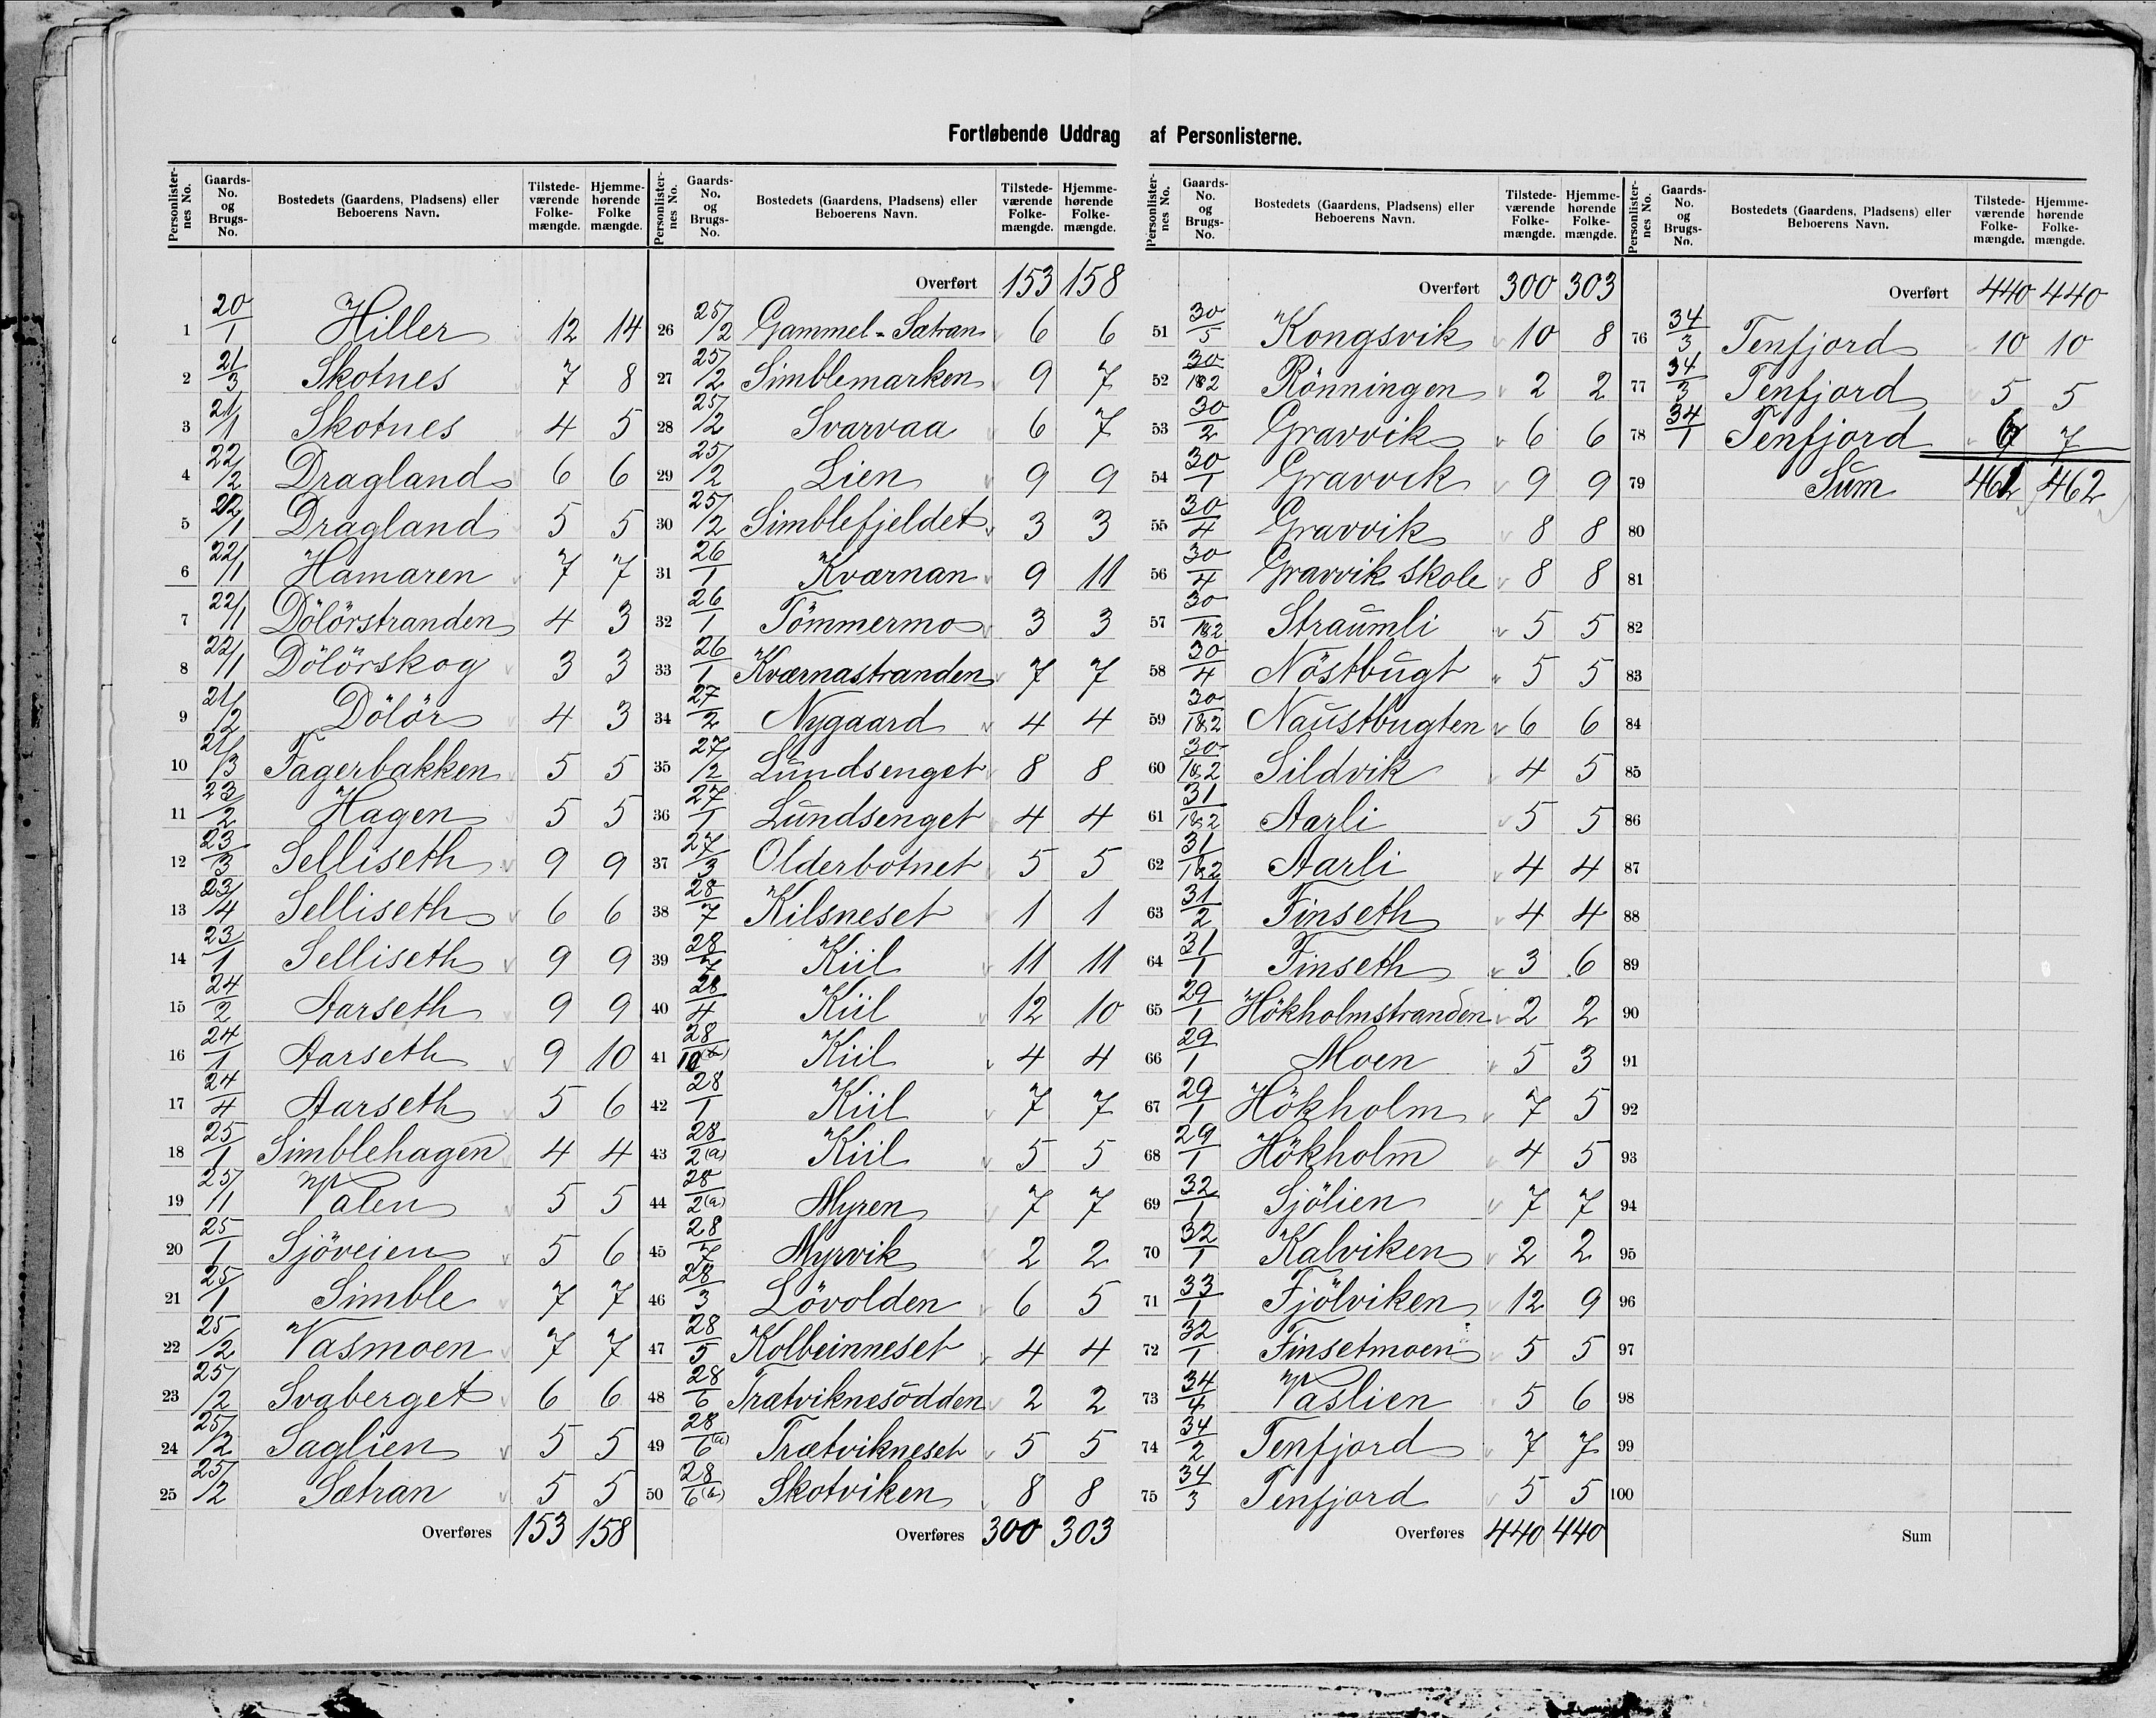 Fortløbende Uddrag af Personlisterne.
Personlister-nes No. | Gaards-No. og Brugs-No. | Bostedets (Gaardens, Pladsens) eller Beboerens Navn. | Tilstede-værende Folke-mængde. | Hjemme-hørende Folke mængde.
1 20/1 Hiller 12 14
2 21/3 Skotnes 7 8
3 21/1 Skotnes 4 5
4 22/2 Dragland 6 6
5 22/1 Dragland 5 5
6 22/1 Hamaren 7 7
7 22/1 Dölörstranden 4 3
8 22/1 Dölörskog 3 3
9 21/2 Dölör 4 3
10 21/3 Fagerbakken 5 5
11 23/2 Hagen 5 5
12 23/3 Selliseth 9 9
13 23/4 Selliseth 6 6
14 23/1 Selliseth 9 9
15 24/2 Aarseth 9 9
16 24/1 Aarseth 9 10
17 24/4 Aarseth 5 6
18 25/1 Simblehagen 4 4
19 25/1 Valen 5 5
20 25/1 Sjöveien 5 6
21 25/1 Simble 7 7
22 25/2 Vasmoen 7 7
23 25/2 Svaberget 6 6
24 25/2 Saglien 5 5
25 25/2 Sætran 5 5
Overføres 153 158
Personlister-nes No. | Gaards-No. og Brugs-No. | Bostedets (Gaardens, Pladsens) eller Beboerens Navn. | Tilstede-værende Folke-mængde. | Hjemme-hørende Folke-mængde.
Overført 153 158
26 25/2 Gammel-Sætran 6 6
27 25/2 Simblemarken 9 7
28 25/2 Svarvaa 6 7
29 25/2 Lien 9 9
30 25/2 Simblefjeldet 3 3
31 26/1 Kværnan 9 11
32 26/1 Tömmermo 3 3
33 26/1 Kværnastranden 7 7
34 27/2 Nygaard 4 4
35 27/2 Lundsenget 8 8
36 27/1 Lundsenget 4 4
37 27/3 Olderbotnet 5 5
38 28/7 Kilsneset 1 1
39 28/7 Kiil 11 11
40 28/4 Kiil 12 10
41 28/10 Kiil 4 4
42 28/1 Kiil 7 7
43 28/2(a) Kiil 5 5
44 28/2(a) Myren 7 7
45 28/7 Myrvik 2 2
46 28/3 Lövolden 6 5
47 28/5 Kolbeinneset 4 4
48 28/6 Trætviknesodden 2 2
49 28/6(a) Trætvikneset 5 5
50 28/6(a) Skotviken 8 8
Overføres 300 303
Personlister-nes No. | Gaards-No. og Brugs-No. | Bostedets (Gaardens, Pladsens) eller Beboerens Navn. | Tilstede-værende Folke-mængde. | Hjemme-hørende Folke-mængde.
Overført 300 303
51 30/5 Kongsvik 10 8
52 30/1&2 Rönningen 2 2
53 30/2 Gravvik 6 6
54 30/1 Gravvik 9 9
55 30/4 Gravvik 8 8
56 30/4 Gravvik skole 8 8
57 30/1&2 Straumli 5 5
58 30/4 Nöstbugt 5 5
59 30/1&2 Naustbugten 6 6
60 30/1&2 Sildvik 4 5
61 31/1&2 Aarli 5 5
62 31/1&2 Aarli 4 4
63 31/2 Finseth 4 4
64 31/1 Finseth 3 6
65 29/1 Hökholmstranden 2 2
66 29/1 Moen 5 3
67 29/1 Hökholm 7 5
68 29/1 Hökholm 4 5
69 32/1 Sjölien 7 7
70 32/1 Kalviken 2 2
71 33/1 Fjölviken 12 9
72 32/1 Finsetmoen 5 5
73 34/4 Vaslien 5 6
74 34/2 Tenfjord 7 7
75 34/3 Tenfjord 5 5
Overføres 440 440
Personlister-nes No. | Gaards-No. og Brugs-No. | Bostedets (Gaardens, Pladsens) eller Beboerens Navn. | Tilstede-værende Folke-mængde. | Hjemme-hørende Folke-mængde.
Overført 440 440
76 34/3 Tenfjord 10 10
77 34/3 Tenfjord 5 5
78 34/1 Tenfjord 7 7
79 Sum 462 462
80
81
82
83
84
85
86
87
88
89
90
91
92
93
94
95
96
97
98
99
100
Sum